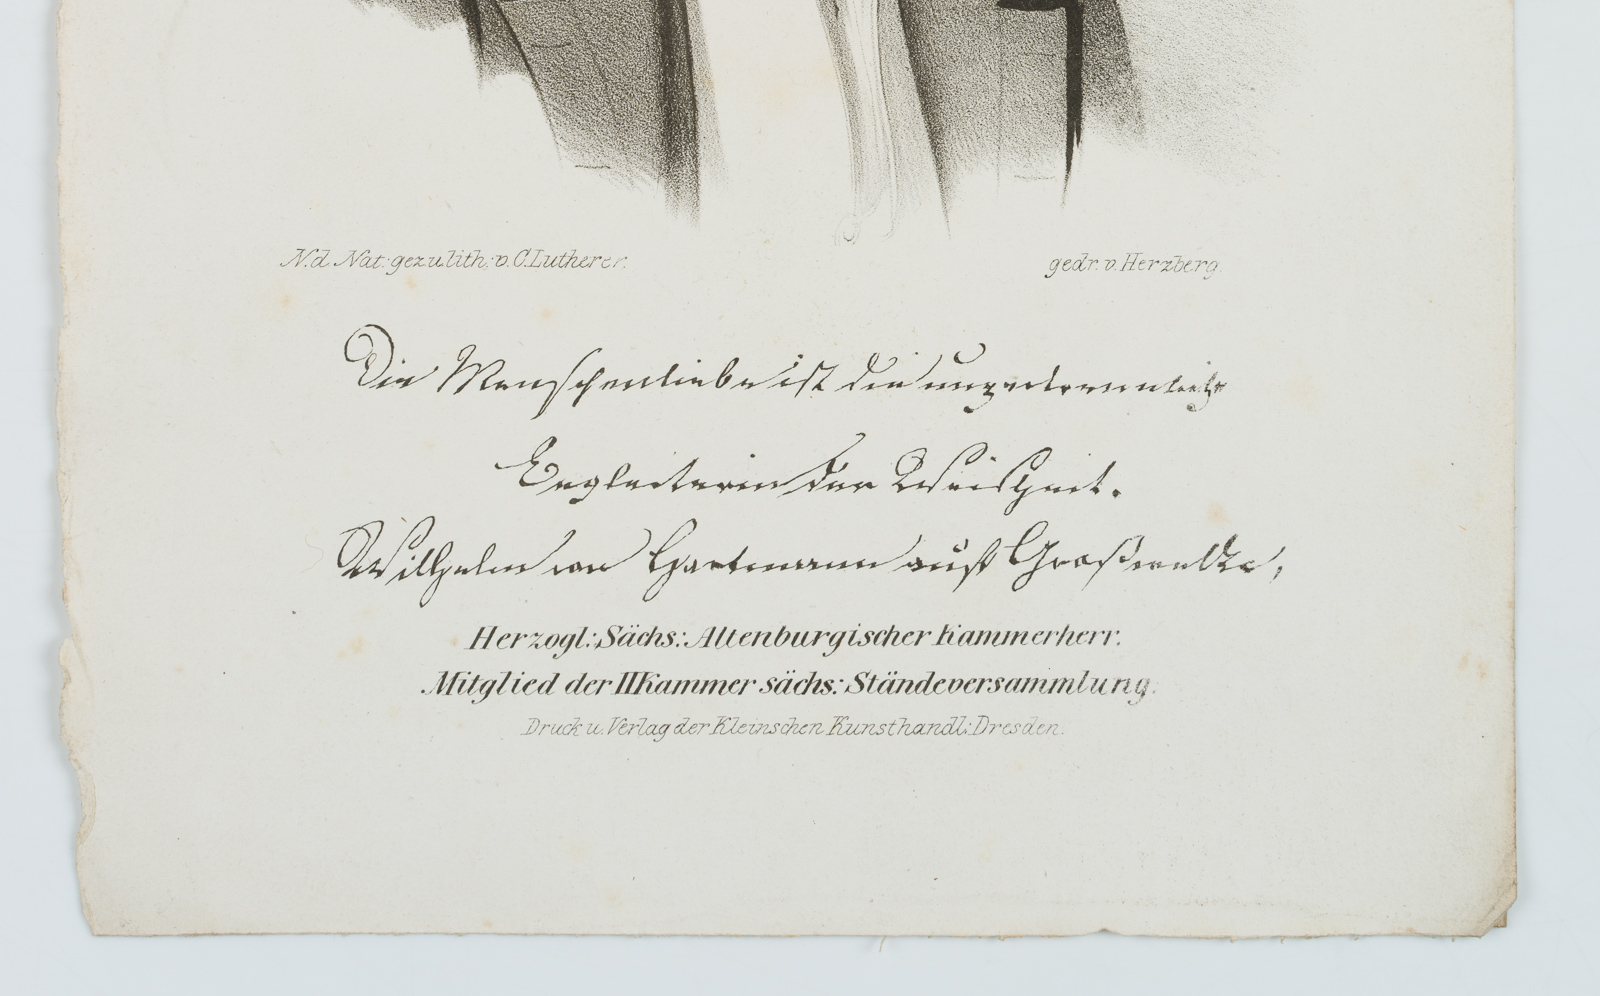 N. d. Nat: gez u. lith: v. C. Lutherer.
gedr. v. Herzberg.
Die Menschenliebe ist die unzertrennliche
Begleiterin der Weisheit.
Wilhelm von Hartmann auf
Herzogl: Sächs: Altenburgischer Kammerherr.
Mitglied der II Kammer sächs: Ständeversammlung.
Druck u. Verlag der Kleinschen Kunsthandl: Dresden.